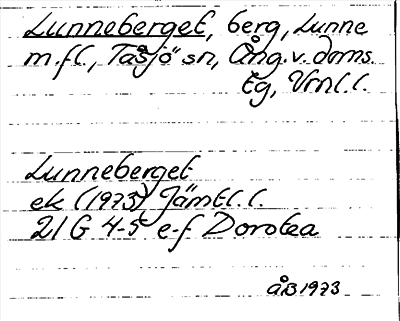 Lunneberget, berg, Lunne
m.fl., Tåsjö sn, Ång.v.doms.
tg, Vrnl.l.
Lunneberget
ek (1973) Jämtl.l.
21 G 4-5 e-f Dorotea
ÅB 1973